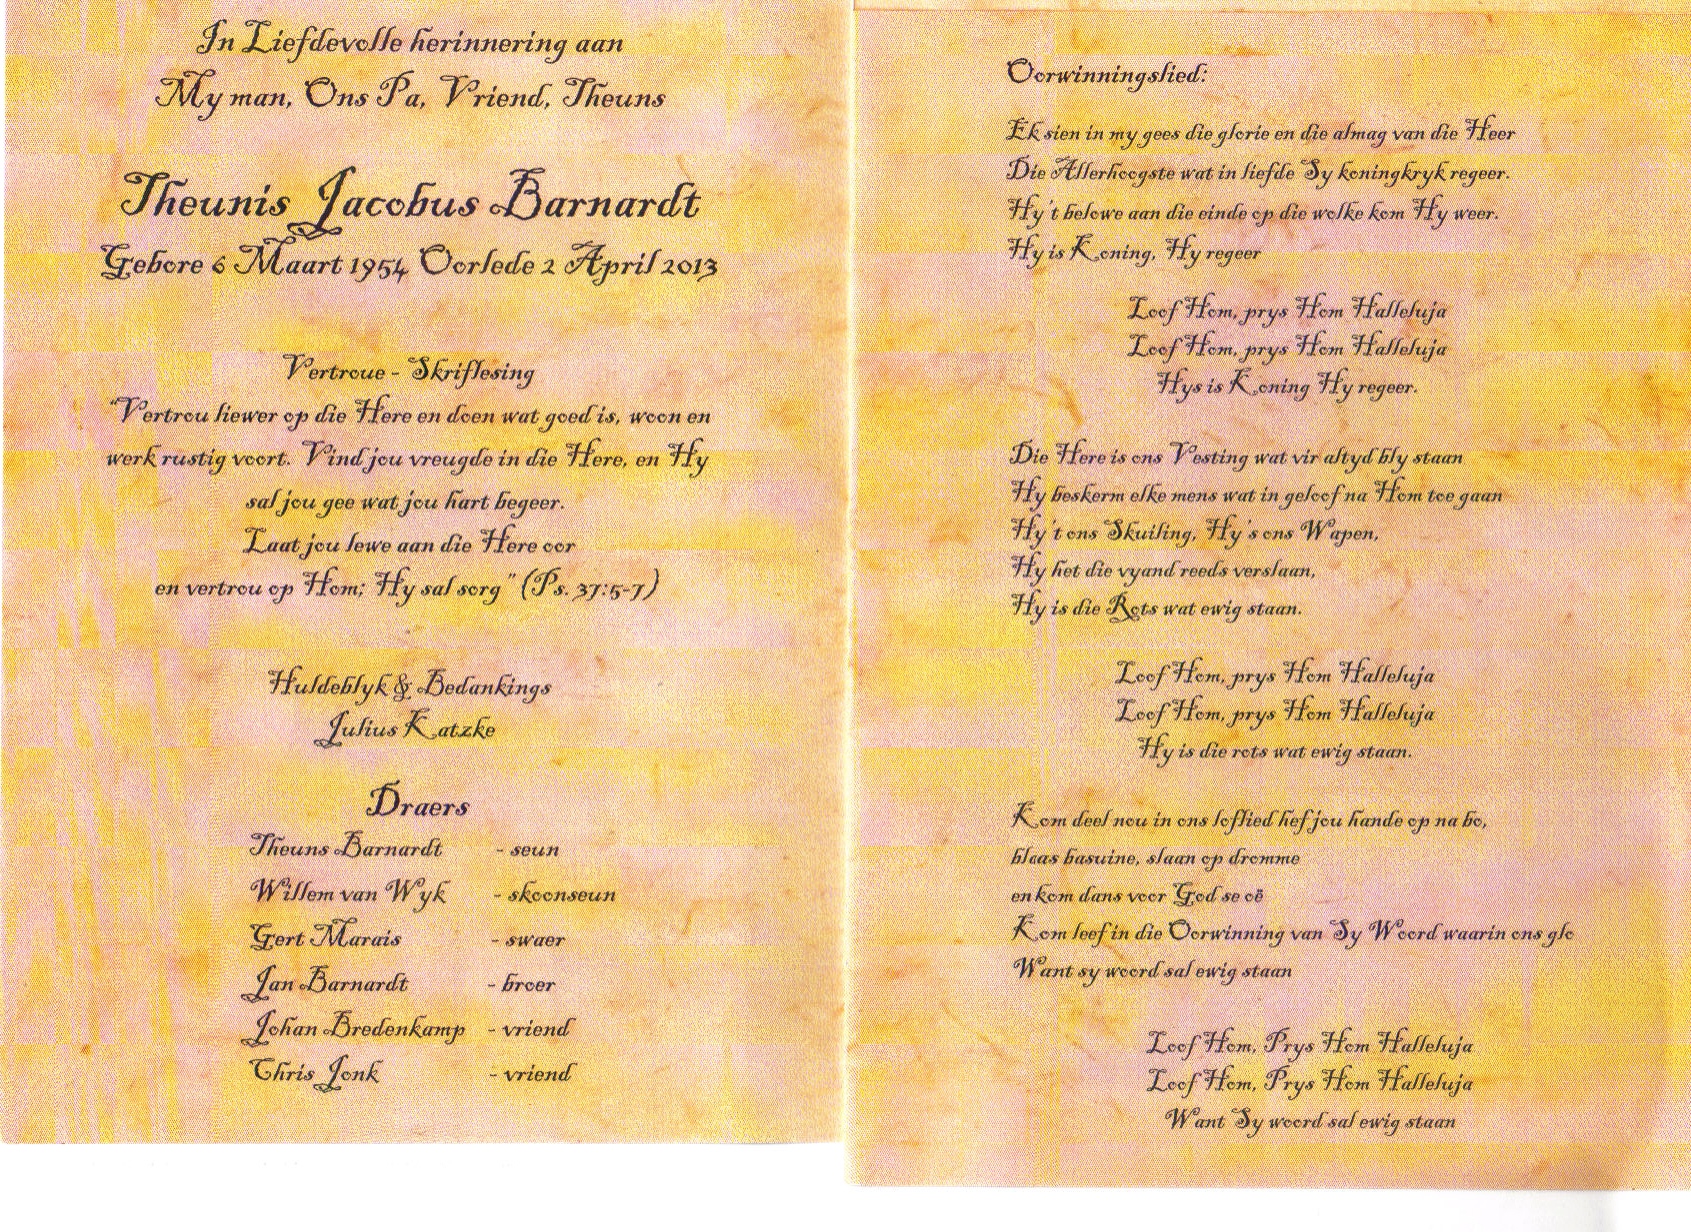 In Liefdevolle herinnering aan
My man, Ons Pa, Vriend, Theuns
Theunis Jacobus Barnardt
Gebore 6 Maart 1954 Oorlede 2 April 2013
Vertroue - Skriflesing
"Vertrou liewer op die Here en doen wat goed is, woon en
werk rustig voort. Vind jou vreugde in die Here, en Hy
sal jou gee wat jou hart begeer.
Laat jou lewe aan die Here oor
en vertrou op Hom; Hy sal sorg" (Ps. 37:5-7)
Huldeblyk & Bedankings
Julius Katzke
Draers
Theuns Barnardt - seun
Willem van Wyk - skoonseun
Gert Marais - swaer
Jan Barnardt - broer
Johan Bredenkamp - vriend
Chris Jonk - vriend
Oorwinningslied:
Ek sien in my gees die glorie en die almag van die Heer
Die Allerhoogste wat in liefde Sy koningkryk regeer.
Hy't belowe aan die einde op die wolke kom Hy weer.
Hy is Koning, Hy regeer
Loof Hom, prys Hom Halleluja
Loof Hom, prys Hom Halleluja
Hys is Koning Hy regeer.
Die Here is ons Vesting wat vir altyd bly staan
Hy beskerm elke mens wat in geloof na Hom toe gaan
Hy't ons Skuiling, Hy's ons Wapen,
Hy het die vyand reeds verslaan,
Hy is die Rots wat ewig staan.
Loof Hom, prys Hom Halleluja
Loof Hom, prys Hom Halleluja
Hy is die rots wat ewig staan.
Kom deel nou in ons loflied hef jou hande op na bo,
blaas basuine, slaan op dromme
en kom dans voor God se oë
Kom leef in die Oorwinning van Sy Woord waarin ons glo
Want sy woord sal ewig staan
Loof Hom, Prys Hom Halleluja
Loof Hom, Prys Hom Halleluja
Want Sy woord sal ewig staan